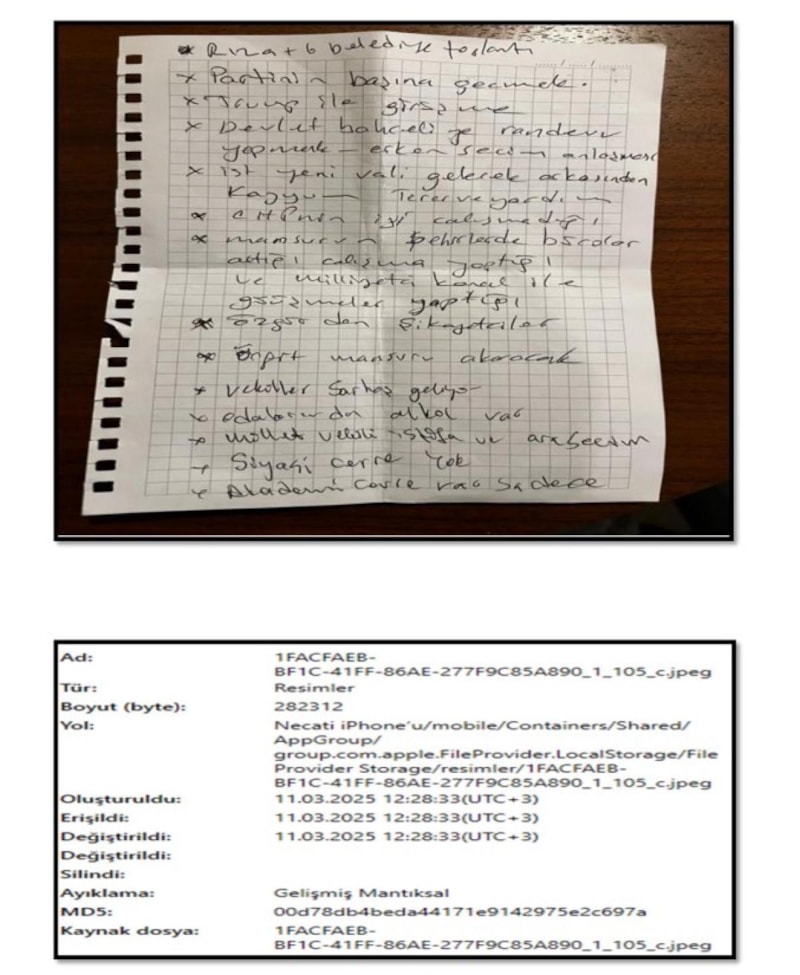 * Rıza + 6 belediye toplantı
* Partinin başına geçmek.
* Trump ile görüşme
* Devlet bahceli ye randevu
yapmak - erken secim anlaşması
* ist yeni vali gelecek arkasından
Kayyum
* CHPnin iyi calışmadığı
* mansurun şehirlerde bürolar
açtığı calışma yaptığı
ve milliyetci kanal ile
görüşmeler yaptığı
* Özgür den şikayetciler
* mansuru
* vekiller Sarhoş geliyor
* odalarında alkol var
* millet vekili istifa ve araseçim
* Siyasi cevre Yok
* Akademi Cevre var Sadece
Ad: 1FACFAEB-
BF1C-41FF-86AE-277F9C85A890_1_105_c.jpeg
Tür: Resimler
Boyut (byte): 282312
Yol: Necati iPhone'u/mobile/Containers/Shared/
AppGroup/
group.com.apple.FileProvider.LocalStorage/File
Provider Storage/resimler/1FACFAEB-
BF1C-41FF-86AE-277F9C85A890_1_105_c.jpeg
Oluşturuldu: 11.03.2025 12:28:33(UTC+3)
Erişildi: 11.03.2025 12:28:33(UTC+3)
Değiştirildi: 11.03.2025 12:28:33(UTC+3)
Değiştirildi:
Silindi:
Ayıklama: Gelişmiş Mantıksal
MD5: 00d78db4beda44171e9142975e2c697a
Kaynak dosya: 1FACFAEB-
BF1C-41FF-86AE-277F9C85A890_1_105_c.jpeg